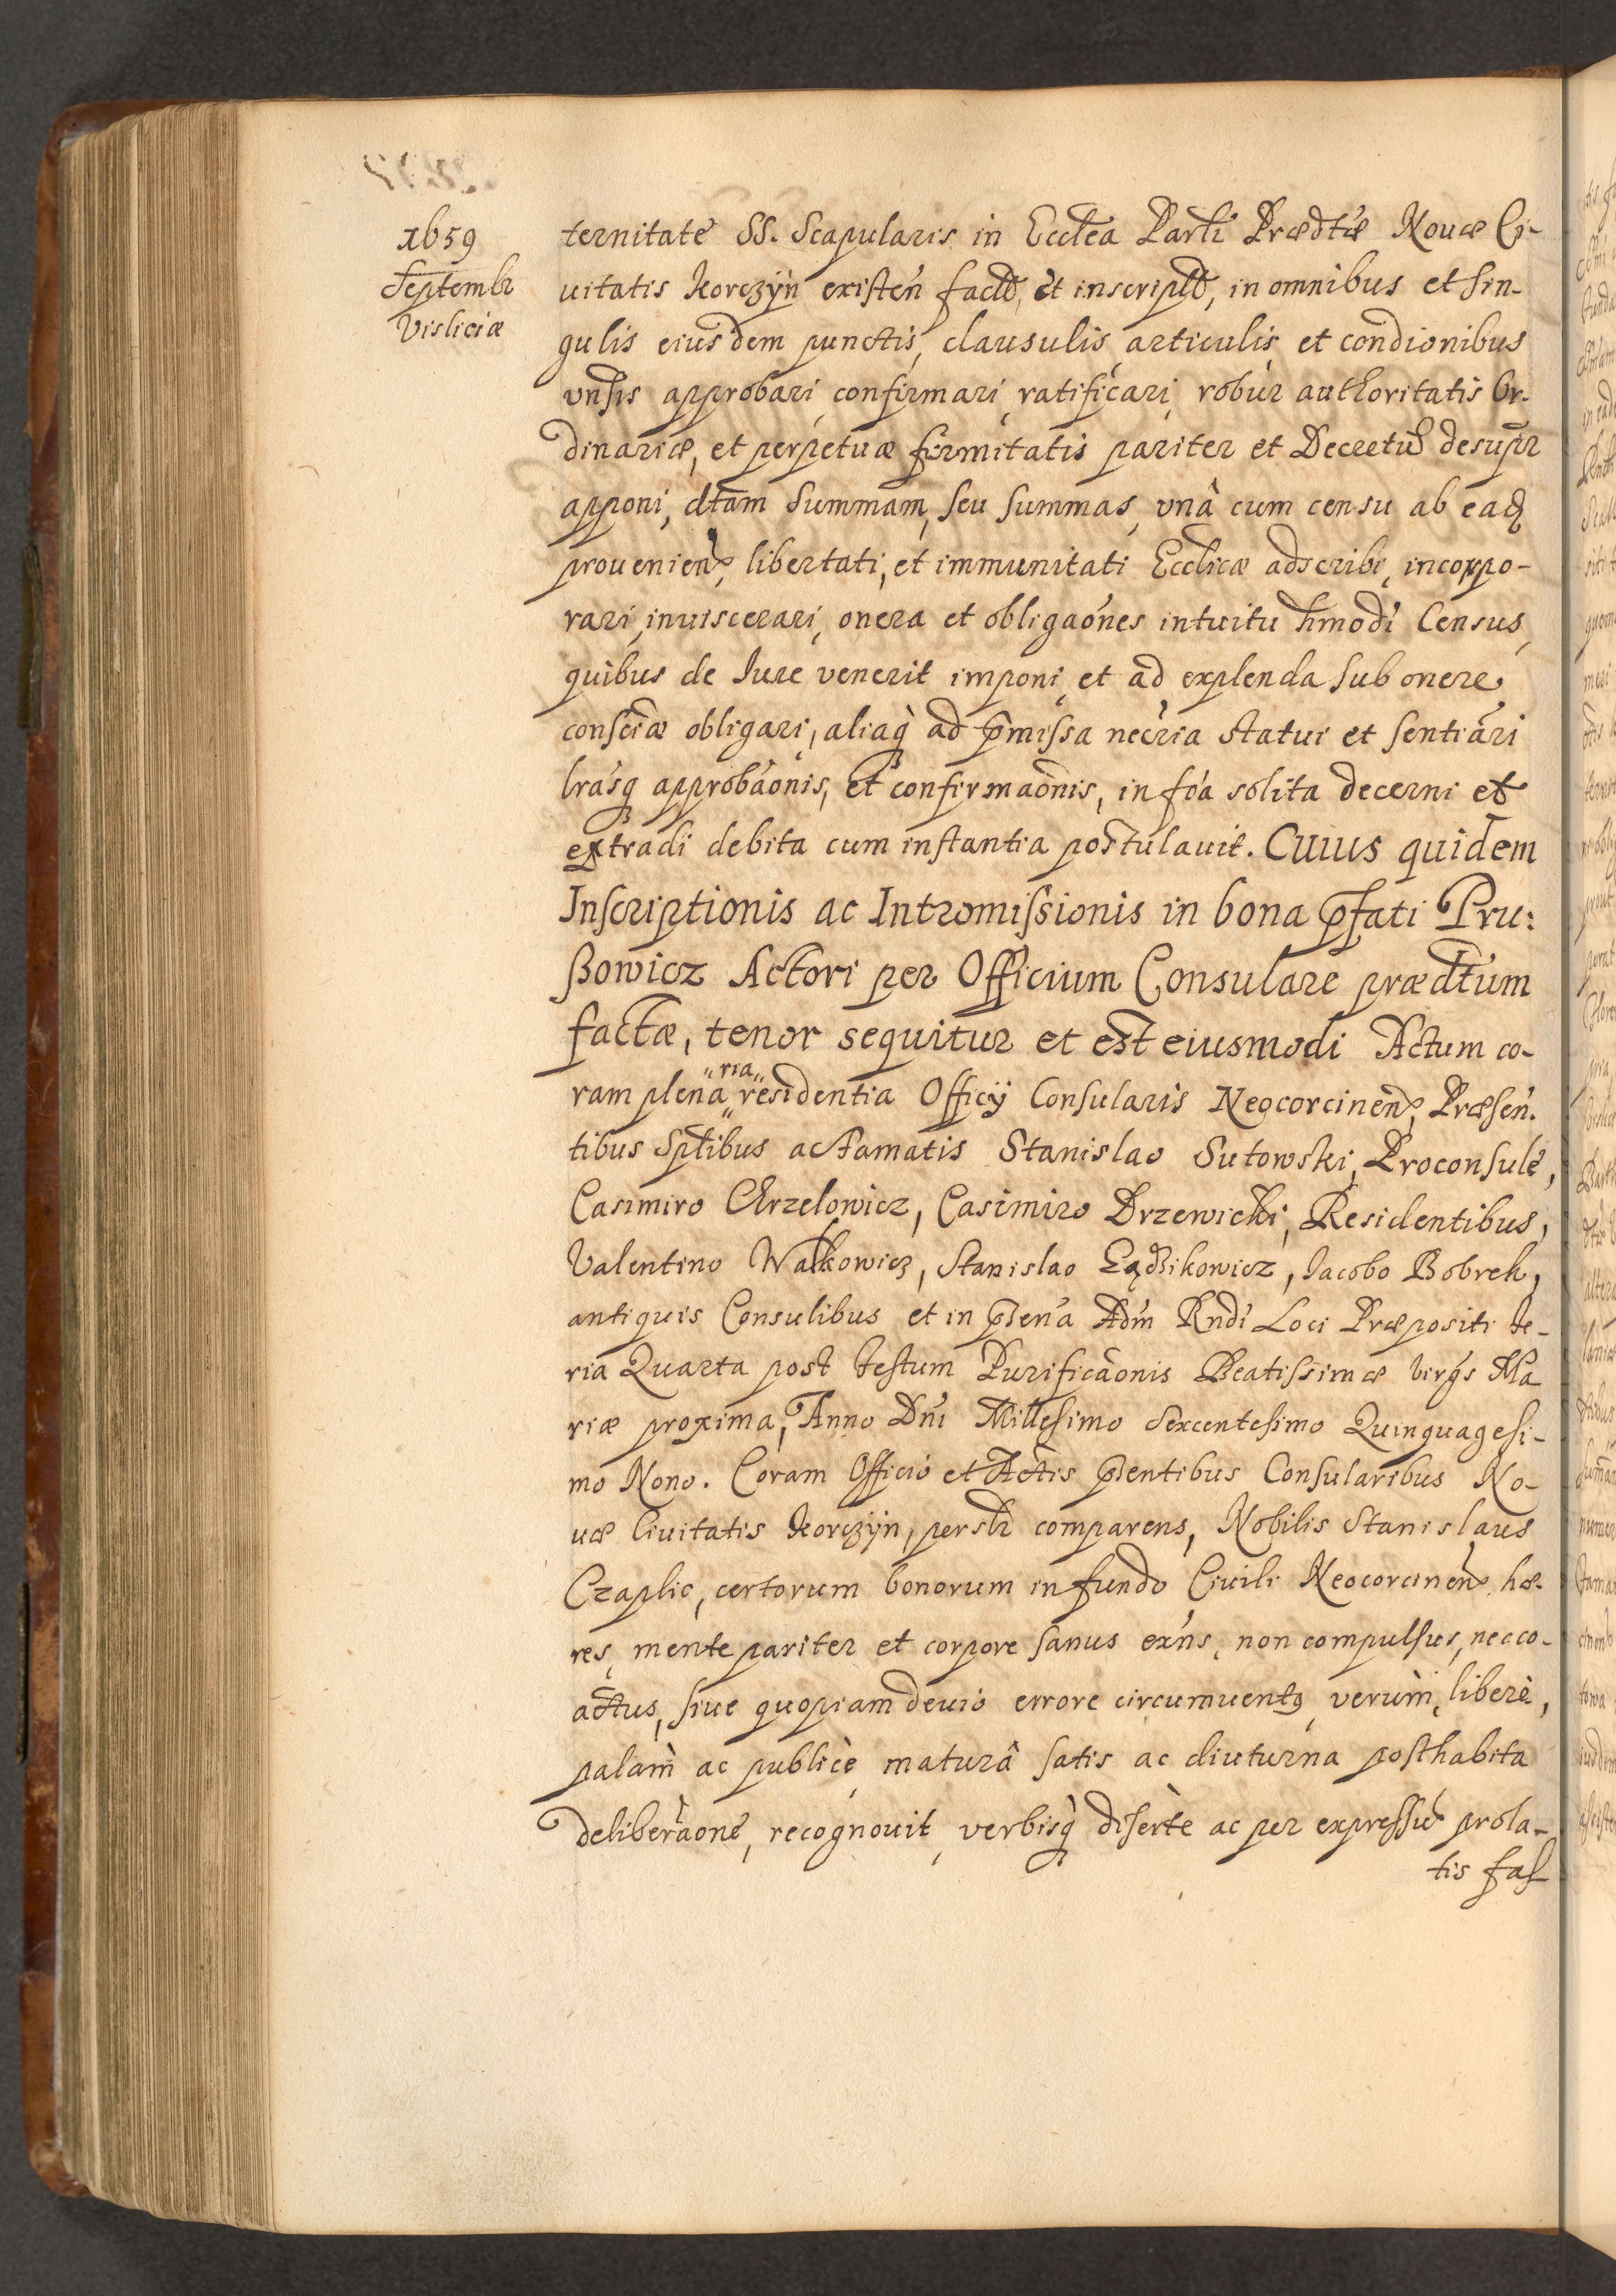 1659
Septembr
Visliciæ
ternitate SS. Scapularis in Ecclea Parli Prædtæ Nouæ Ci-
uitatis Korczÿn existen fact, et inscript, in omnibus et sin-
gulis eiusdem punctis, clausulis articulis et condionibus
vnsis approbari confirmari ratificari robur authoritatis Or-
dinariæ, et perpetuæ firmitatis pariter et Decretũ desupr
apponi, dtam Summam, seu summas, vnà cum censu ab eadẽ
prouenien, libertati, et immunitati Ecclicæ adscribi, incorpo-
rari, inuiscerari, onera et obligaones intuitu hmodi Census,
quibus de Iure venerit imponi et ad explenda sub onere
consciæ obligari, aliaq ad pmissa necria statui et sentiari
lrasq approbaonis, et confirmaonis, in foa solita decerni et
extradi debita cum instantia postulauit. Cuius quidem
Inscriptionis ac Intromissionis in bona pfati Pru:
ßowicz Actori per Officium Consulare prædtum
factæ, tenor sequitur et est eiusmodi Actum co-
ram plena "ria" residentia Officÿ Consularis Neocorcinen, Præsen-
tibus Sptibus ac famatis Stanislao Sutowski, Proconsule,
Casimiro Chrzelowicz, Casimiro Drzewicki, Residentibus,
Valentino Walkowicz, Stanislao Łądzikowicz, Iacobo Bobrek,
antiquis Consulibus et in psena Adm Rndi Loci Præpositi Fe-
ria Quarta post festum Purificaonis Beatissimæ Virgs Ma
riæ proxima, Anno Dni Millesimo Sexcentesimo Quinquagesi-
mo Nono. Coram Officio et Actis psentibus Consularibus No-
uæ Ciuitatis Korczÿn, persr comparens, Nobilis Stanislaus
Czaplic, certorum bonorum in fundo Ciuili Neocorcinen hæ-
res, mente pariter et corpore sanus exns, non compulsus, nec co-
actus, siue quopiam deuio errore circumuentq, verùm, liberè,
palam ac publicè maturâ satis ac diuturna posthabita
deliberaone, recognouit verbisq disertè ac per expressũ prola-
tis fas-